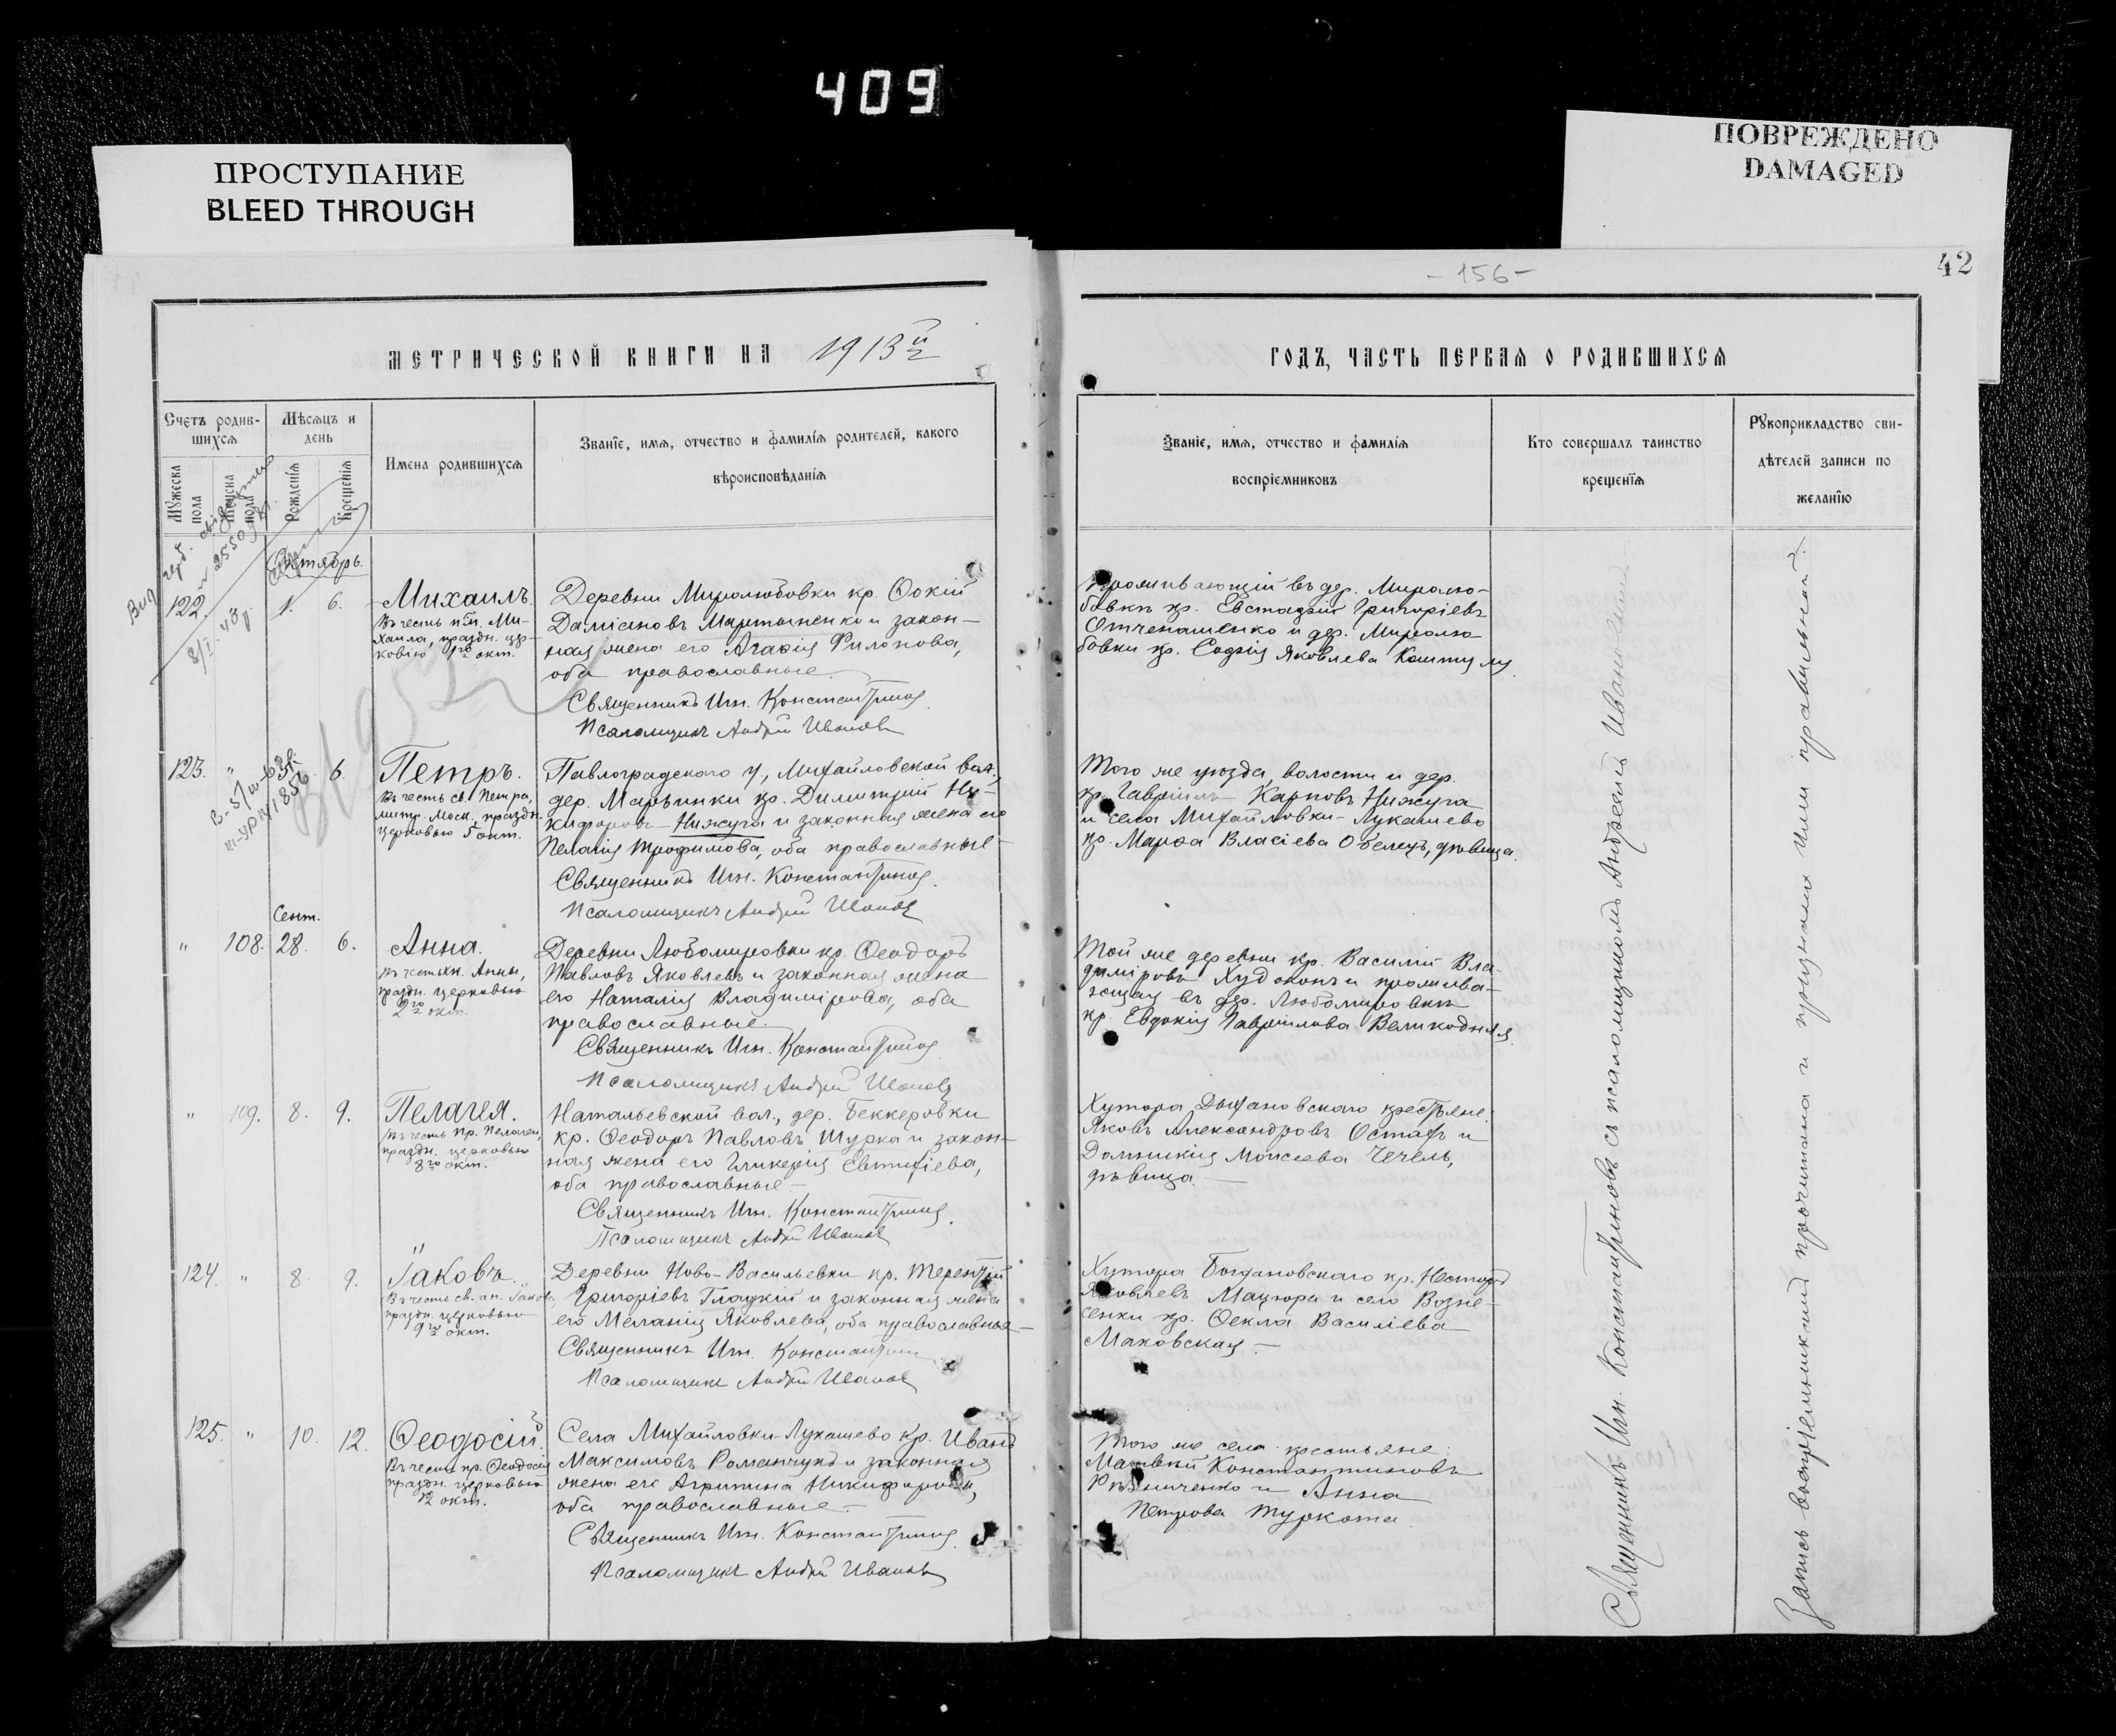 409
ПРОСТУПАНИЕ
BLEED THROUGH
ПОВРЕЖДЕНО
DAMAGED
42
- 156 -
МЕТРИЧЕСКОЙ КНИГИ НА 1913й
ГОДЪ, ЧАСТЬ ПЕРВАЯ О РОДИВШИХСЯ
Счетъ родив-
шихся
Мѣсяцъ и
день
Мужеска
пола
Женска
пола
Рожденія
Крещенія
Имена родившихся
Званіе, имя, отчество и фамилія родителей, какого
вѣроисповѣданія
Званіе, имя, отчество и фамилія
воспріемниковъ
Кто совершалъ таинство
крещенія
Рукоприкладство сви-
дѣтелей записи по
желанію
122. 1. 6.
Михаилъ.
Въ честь
Ми-
хаила, праздн. цер-
ковію 1го окт.
Деревни Миролюбовки кр. Ѳокій
Даміановъ Мартыненко и закон-
ная жена его Агафія Филонова,
оба православные.
Священникъ Ин. Константинов
Псаломщикъ Андрей Иванов
Проживающій въ дер. Миролю-
бовкѣ кр. Евстафій Григоріевъ
Отченашенко и дер. Миролю-
бовки кр. Софія Яковлева
123. " 6.
Петръ.
Въ честь св. Петра,
митр. Моск., праздн.
церковью 5 окт.
Павлоградскаго у., Михайловской вол.,
дер. Марьинки кр. Димитрій Ни-
кифоровъ Нижуга и законная жена его
Пелагія Трофимова, оба православные -
Священникъ Ин. Константинов
Псаломщикъ Андрей Иванов
Того же уѣзда, волости и дер.
кр. Гавріилъ Карповъ Нижуга
и села Михайловки-Лукашево
кр. Марѳа Власіева Обелецъ, дѣвица.
Сент.
" 108. 28. 6.
Анна.
Въ честь Анны,
праздн. церковью
2го окт.
Деревни Любомировки кр. Ѳеодоръ
Павловъ Яковлевъ и законная жена
его Наталія Владимірова, оба
православные.
Священникъ Ин. Константинов
Псаломщикъ Андрей Иванов
Той же деревни кр. Василій Вла-
диміровъ Худоконь и прожива-
ющая въ дер. Любомировкѣ
кр. Евдокія Гавріилова Великодная.
" 109. 8. 9.
Пелагея.
Въ честь пр. Пелагеи,
праздн. церковью
8го окт.
Натальевской вол., дер. Беккеровки
кр. Ѳеодоръ Павловъ Шурка и закон-
ная жена его Гликерія Евтихіева,
оба православные -
Священникъ Ин. Константинов
Псаломщикъ Андрей Иванов
Хутора крестьяне:
Яковъ Александровъ Остахъ и
Домникія Моисеева Чечель,
дѣвица. -
124. " 8. 9.
Іаковъ.
Въ честь св. ап. Іакова,
праздн. церковью
9го окт.
Деревни Ново-Васильевки кр. Терентій
Григоріевъ Гладкій и законная жена
его Меланія Яковлева, оба православные -
Священникъ Ин. Константинов
Псаломщикъ Андрей Иванов
Хутора Богдановскаго кр. Несторъ
Яковлевъ Мацюра и село Возне-
сенки кр. Ѳекла Василіева
Маковская. -
125. " 10. 12.
Ѳеодосій.
Въ честь пр. Ѳеодосія
праздн. церковью
12 окт.
Села Михайловки-Лукашево кр. Иванъ
Максимовъ Романчукъ и законная
жена его Агрипина Никифорова,
оба православные. -
Священникъ Ин. Константинов
Псаломщикъ Андрей Иванов
Того же села крестьяне:
Матвѣй Константиновъ
Рѣзниченко и Анна
Петрова Туркота.
Священникъ Ин. Константиновъ съ псаломщикомъ Андреемъ Ивановымъ
Запись воспріемниками прочитана и признана ими правильной.